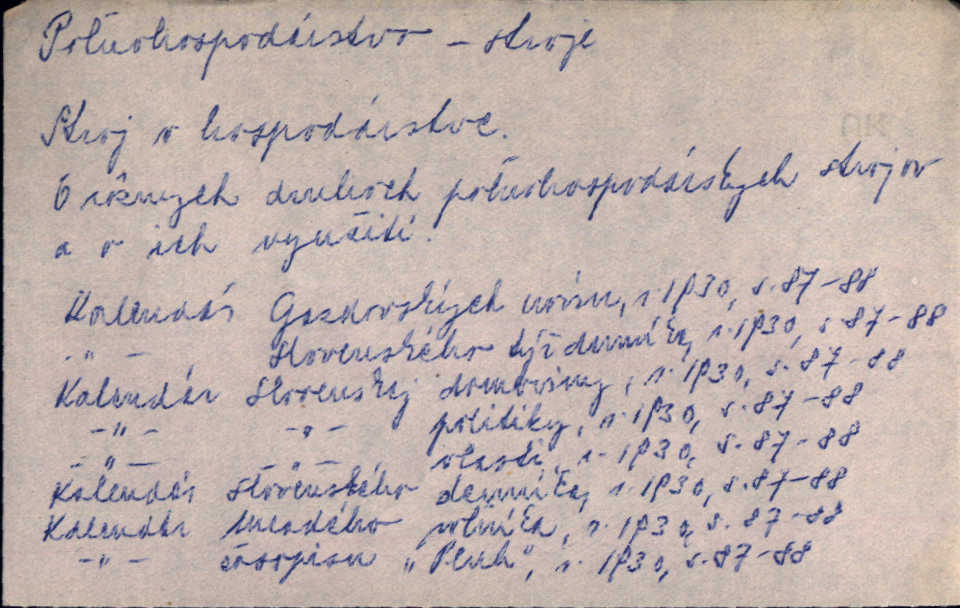 Poľnohospodárstvo - stroje
Stroj v hospodárstve.
O rôznych druhoch poľnohospodárskych strojov
a o ich využití.
Kalendár Gazdovských novín, r. 1930, s. 87-88
-"- Slovenského týždenníka, r. 1930, s. 87-88
Kalendár Slovenskej domoviny, r. 1930, s. 87-88
-"- -"- politiky, r. 1930, s. 87-88
-"- -"- vlasti, r. 1930, s. 87-88
Kalendár Slovenského denníka, r. 1930, s. 87-88
Kalendár mladého roľníka, r. 1930, s. 87-88
-"- časopisu "Pluh", r. 1930, s. 87-88